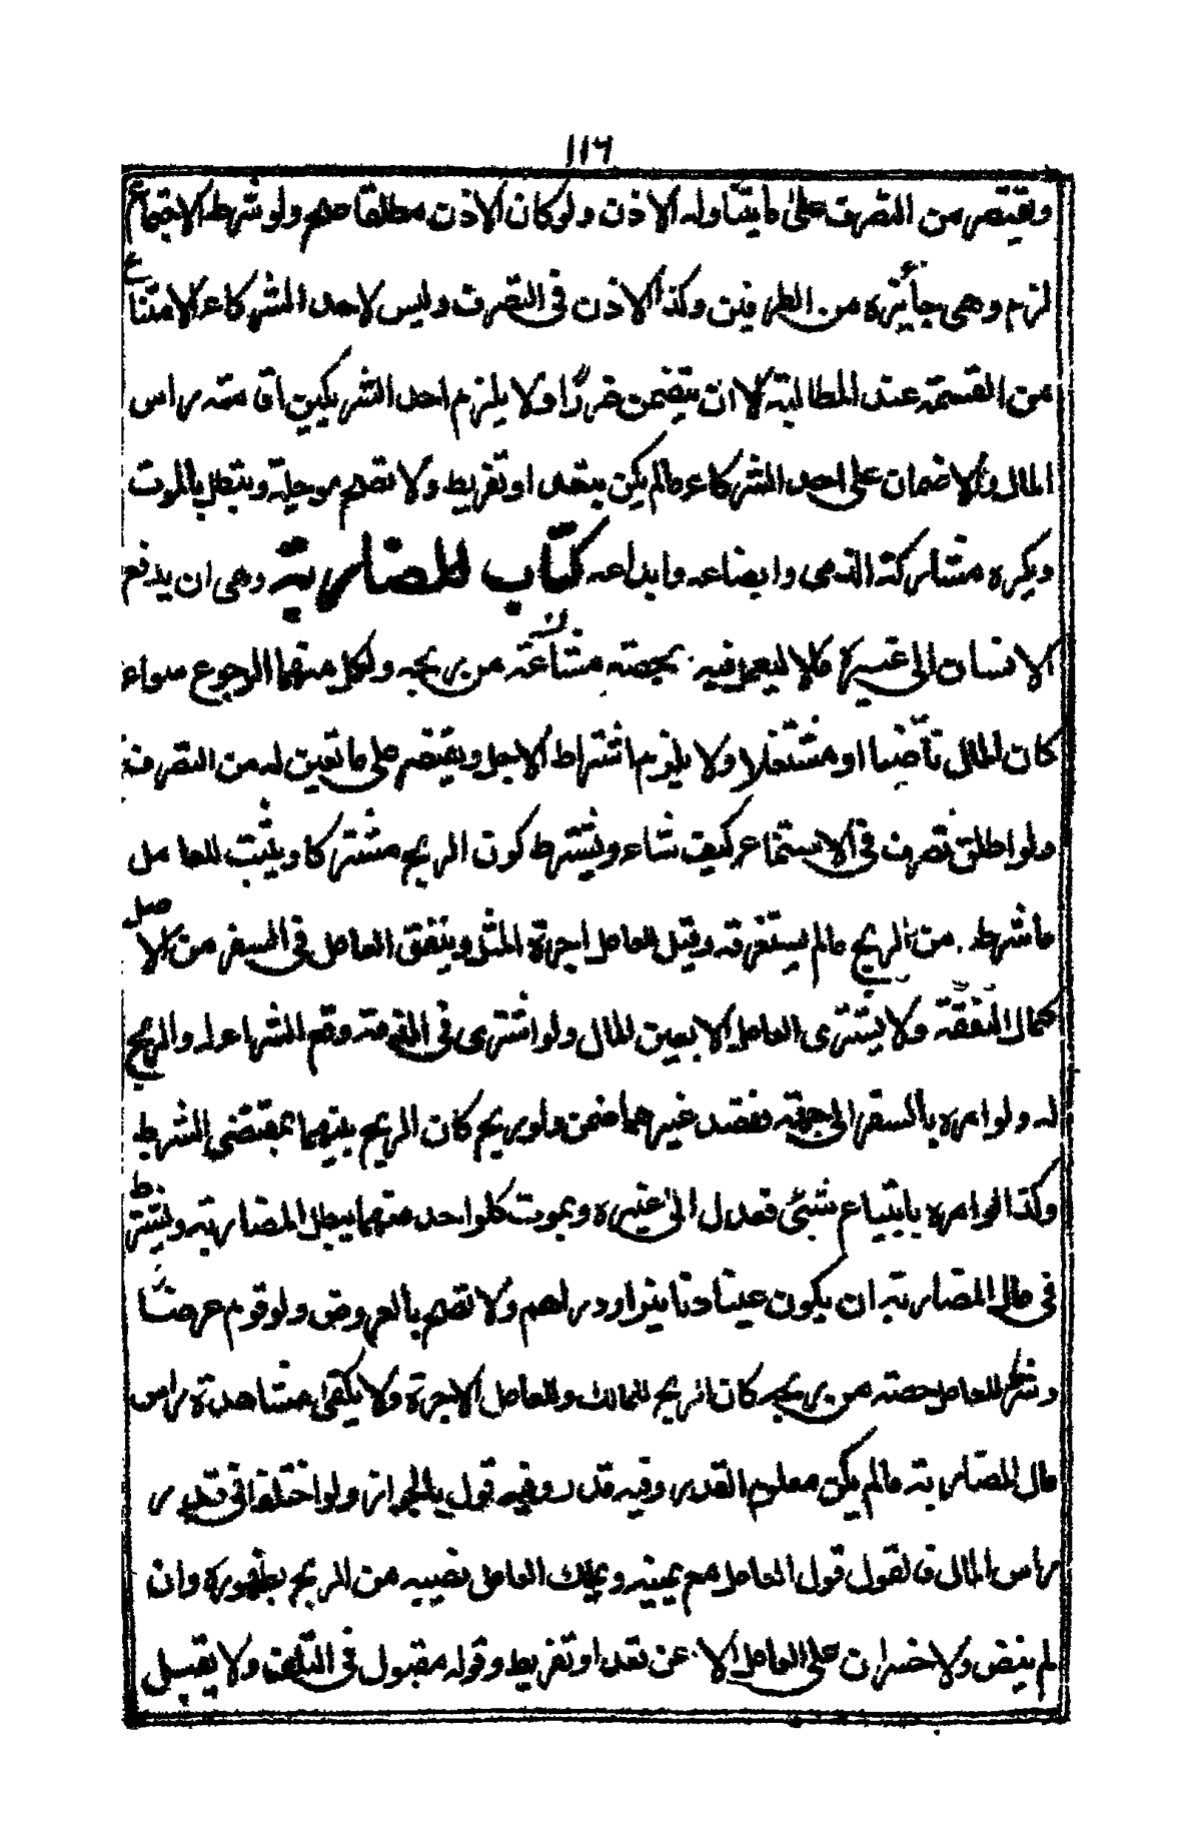 ۱۱۶
ويقتصر من التصرف على ما يتناوله الاذن ولو كان الاذن مطلقا صح ولو شرط الاجتماع
لزم وهي جائزة من الطرفين وكذا الاذن في التصرف وليس لاحد الشركاء الامتناع
من القسمة عند المطالبة الا ان يتضمن ضررًا ولا يلزم احد الشريكين اقامة راس
المال ولا ضمان على احد الشركاء ما لم يكن بتعد او تفريط ولا تصح موجلة وتبطل بالموت
ويكره مشاركة الذمي وابضاعه وايداعه كتاب المضاربة وهي ان يدفع
الانسان الى غيره مالا ليعمل فيه بحصة مشاعة من ربحه ولكل منهما الرجوع سواء
كان المال ناضا او مشتغلا ولا يلزم اشتراط الاجل ويقتصر على ما تعين له من التصرف
ولو اطلق تصرف في الاستنماء كيف شاء ويشترط كون الربح مشتركا ويثبت للعامل
ما شرط من الربح ما لم يستغرقه وقيل للعامل اجرة المثل وينفق العامل في السفر من الاصل
كمال النفقة ولا يشتري العامل الا بعين المال ولو اشترى في الذمة وقع الشراء له والربح
له ولو امره بالسفر الى جهة فقصد غيرها ضمن ولو ربح كان الربح بينهما بمقتضى الشرط
وكذا لو امره بابتياع شئ فعدل الى غيره وبموت كل واحد منهما تبطل المضاربة ويشترط
في مال المضاربة ان يكون عينا دنانير او دراهم ولا تصح بالعروض ولو قوم عرضا
وشرط للعامل حصة من ربحه كان الربح للمالك وللعامل الاجرة ولا يكفى مشاهدة راس
مال المضاربة ما لم يكن معلوم القدر وفيه قول بالجواز ولو اختلفا في قدر
راس المال فالقول قول العامل مع يمينه ويملك العامل نصيبه من الربح بظهوره وان
لم ينض ولا خسران على العامل الا عن تعد او تفريط وقوله مقبول في التلف ولا يقبل